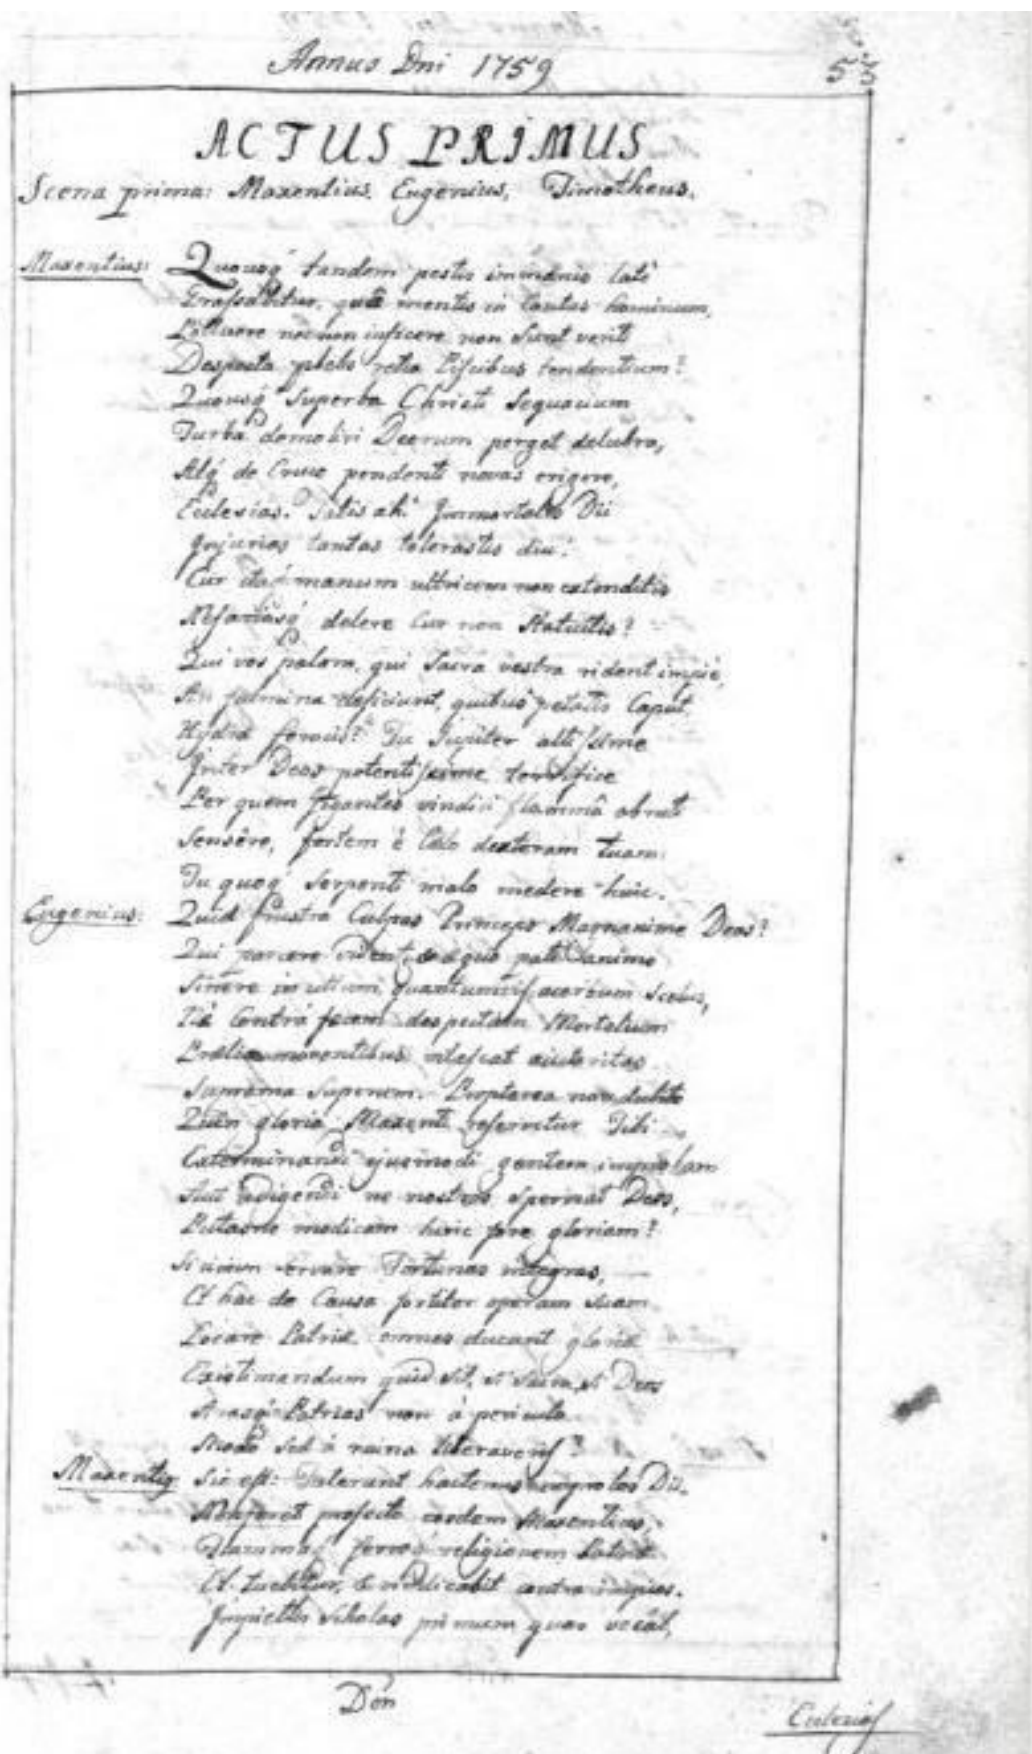 Annus Dni 1759
53
ACTUS PRIMUS
Scena prima: Maxentius. Eugenius, Timotheus.
Maxentius: Quousq́ tandem pestis immanis latè
Grassabitur, quæ mentis in tantas hominum,
Polluere nec non inficere non sunt veriti
Despecta plebs retia Piscibus tendentium?
Quousq́ Superba Christi Sequacium
Turba demoliri Deorum perget delubra,
Atq́ de Cruce pendenti novas erigere,
Eclesias. Satis ah! Immortales Dii
Injurias tantas tolerastis diu!
Cur itaq́ manum ultricem non extenditis
Nefariasq́ delere Cur non Statuitis?
Qui vos palam, qui Sacra vestra rident impiè,
An fulmina deficiunt, quibus petatis Caput
Hydræ ferocis? Tu Jupiter altissime
Inter Deos potentissime terrifice
Per quem Gigantes vindici flammâ obruti
Sensêre, fortem è Cælo dexteram tuam.
Tu quoq́ Serpenti malo medere huic.
Eugenius: Quid frustra Culpas Princeps Magnanime Deos?
Qui parcere vident æquo pati animo
Sinere inultum, quantumvis acerbum Scelus,
Ne Contra fæcem despectam Mortalium
vilescat auctoritas
Suprema Superum. Propterea non dubito
Quin gloria, Maxenti reservetur Tibi
Exterminandi ejusmodi gentem improbam
Aut adigendi ne nostros Spernat Deos,
Putasne modicam hinc fore gloriam?
Si civium Servare Fortunas integras,
Et hac de Causa fortiter operam Suam
Locare Patriæ omnes ducant gloriæ
Existimandum quid sit, si Sacra, si Deos
Arasq́ Patrias non à periculo
Modo Sed à ruina liberaveris?
Maxentiq Sic est: Tulerant hactenus Dii.
Non feret profecto eosdem Maxentius,
Flamma, ferroq́ religionem Patriæ
Et tuebitur, & vindicabit contra impios.
Impietatis Scholas primum quas vocãt,
Dõn
Eclesias